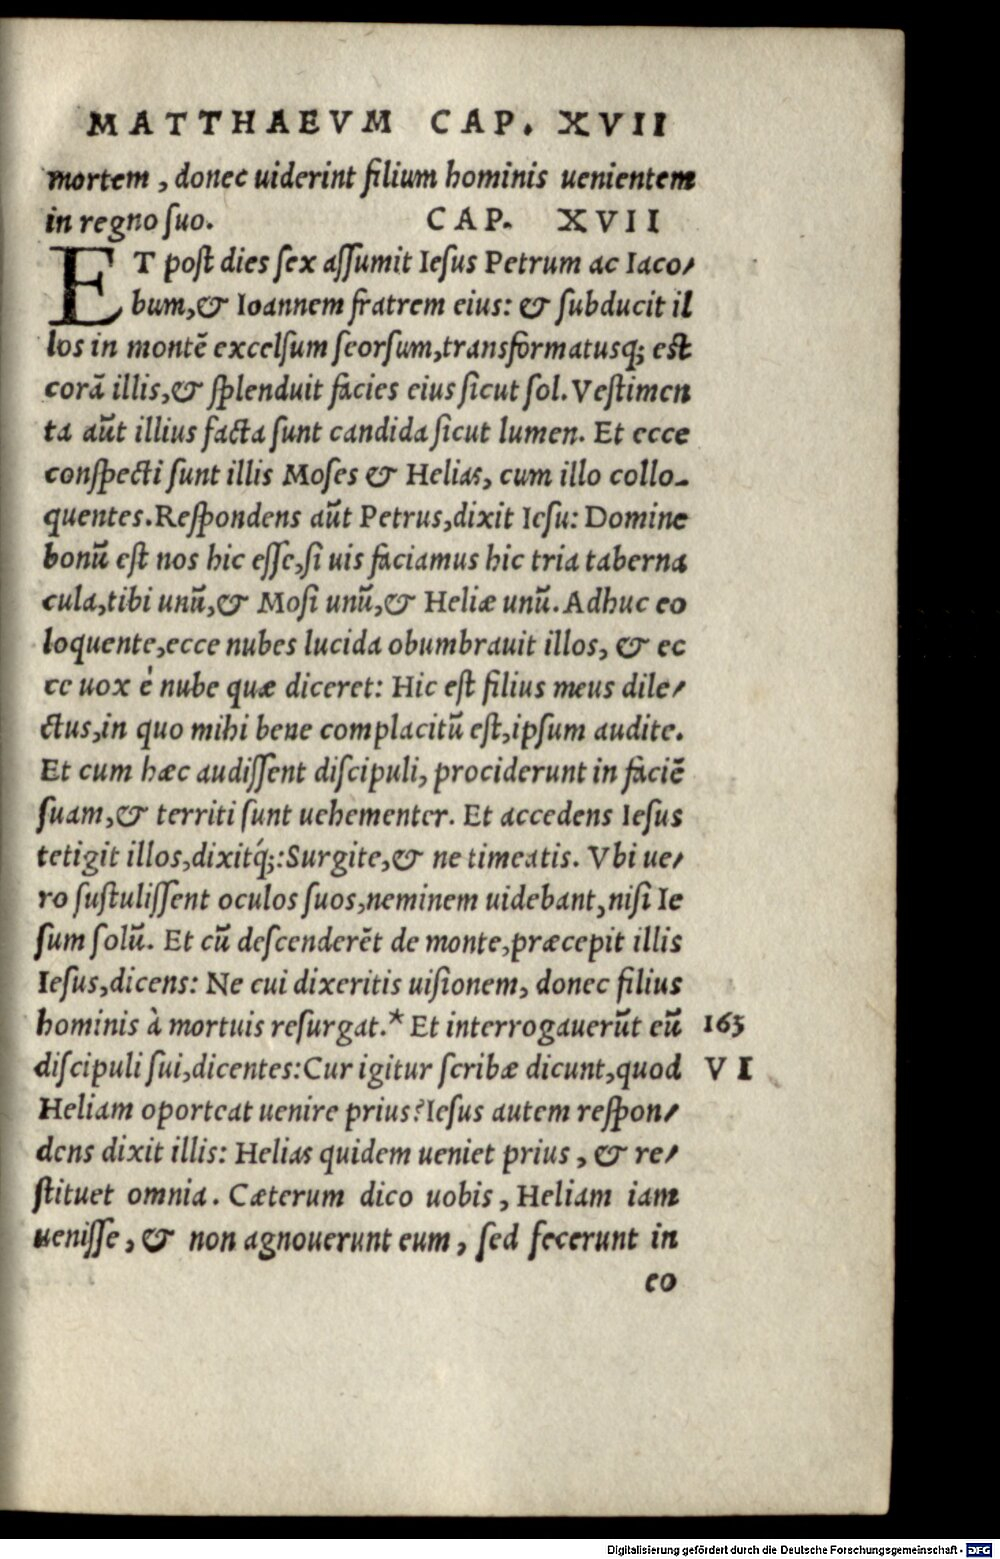 MATTHAEVM CAP. XVII
mortem, donec uiderint filium hominis uenientem
in regno ſuo. CAP. XVII
ET poſt dies ſex aſſumit Ieſus Petrum ac Iaco⸗
bum,& Ioannem fratrem eius: & ſubducit il
los in montē excelſum ſeorſum,transformatusq; eſt
corā illis,& ſplenduit facies eius ſicut ſol. Veſtimen
ta aūt illius facta ſunt candida ſicut lumen. Et ecce
conſpecti ſunt illis Moſes & Helias, cum illo collo-
quentes.Reſpondens aūt Petrus,dixit Ieſu: Domine
bonū eſt nos hic eſſe,ſi uis faciamus hic tria taberna
cula,tibi unū,& Moſi unū,& Heliæ unū.Adhuc eo
loquente,ecce nubes lucida obumbrauit illos, & ec
ce uox è nube quæ diceret: Hic eſt filius meus dile⸗
ctus,in quo mihi bene complacitū eſt,ipſum audite.
Et cum hæc audiſſent diſcipuli, prociderunt in faciē
ſuam,& territi ſunt uehementer. Et accedens Ieſus
tetigit illos,dixitq́;:Surgite,& ne timeatis. Vbi ue⸗
ro ſuſtuliſſent oculos ſuos,neminem uidebant,niſi Ie
ſum ſolū. Et cū deſcenderēt de monte,præcepit illis
Ieſus,dicens: Ne cui dixeritis uiſionem, donec filius
hominis à mortuis reſurgat.* Et interrogauerūt eū 163
diſcipuli ſui,dicentes:Cur igitur ſcribæ dicunt,quod VI
Heliam oporteat uenire prius?Ieſus autem reſpon⸗
dens dixit illis: Helias quidem ueniet prius, & re⸗
ſtituet omnia. Cæterum dico uobis, Heliam iam
ueniſſe, & non agnouerunt eum, ſed fecerunt in
eo
Digitalisierung gefördert durch die Deutsche Forschungsgemeinschaft - DFG